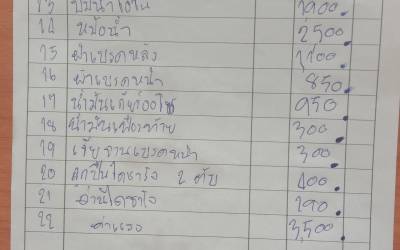 13 ปั๊มน้ำ 1900.
14 หม้อน้ำ 2500.
15 ผ้าเบรคหลัง 1,100.
16 ผ้าเบรคหน้า 850.
17 น้ำมันเกียร์ออโต้ 950.
18 น้ำมันเฟืองท้าย 300.
19 เจียจานเบรคหน้า 300.
20 ลูกปืนไดชาร์จ 2 ตับ 400.
21 ถ่านไดชาร์จ 290.
22 ค่าแรง 3,500.